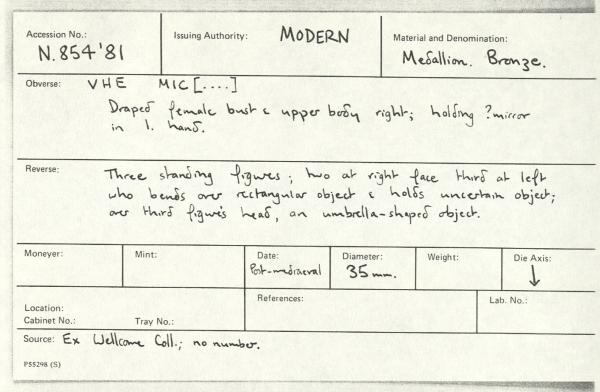 Accession No.: Issuing Authority: MODERN Material and Denomination:
N.854'81 Medallion. Bronze.
Obverse: VHE MIC[....]
Draped female bust & upper body right; holding ?mirror
in l. hand.
Reverse: Three standing figures; two at right face third at left
who bends over rectangular object & holds uncertain object;
over third figure's head, an umbrella-shaped object.
Moneyer: Mint: Date: Diameter: Weight: Die Axis:
Post-mediaeval 35mm. ↓
Location: References: Lab. No.:
Cabinet No.: Tray No.:
Source: Ex Wellcome Coll.; no number.
P55298 (S)